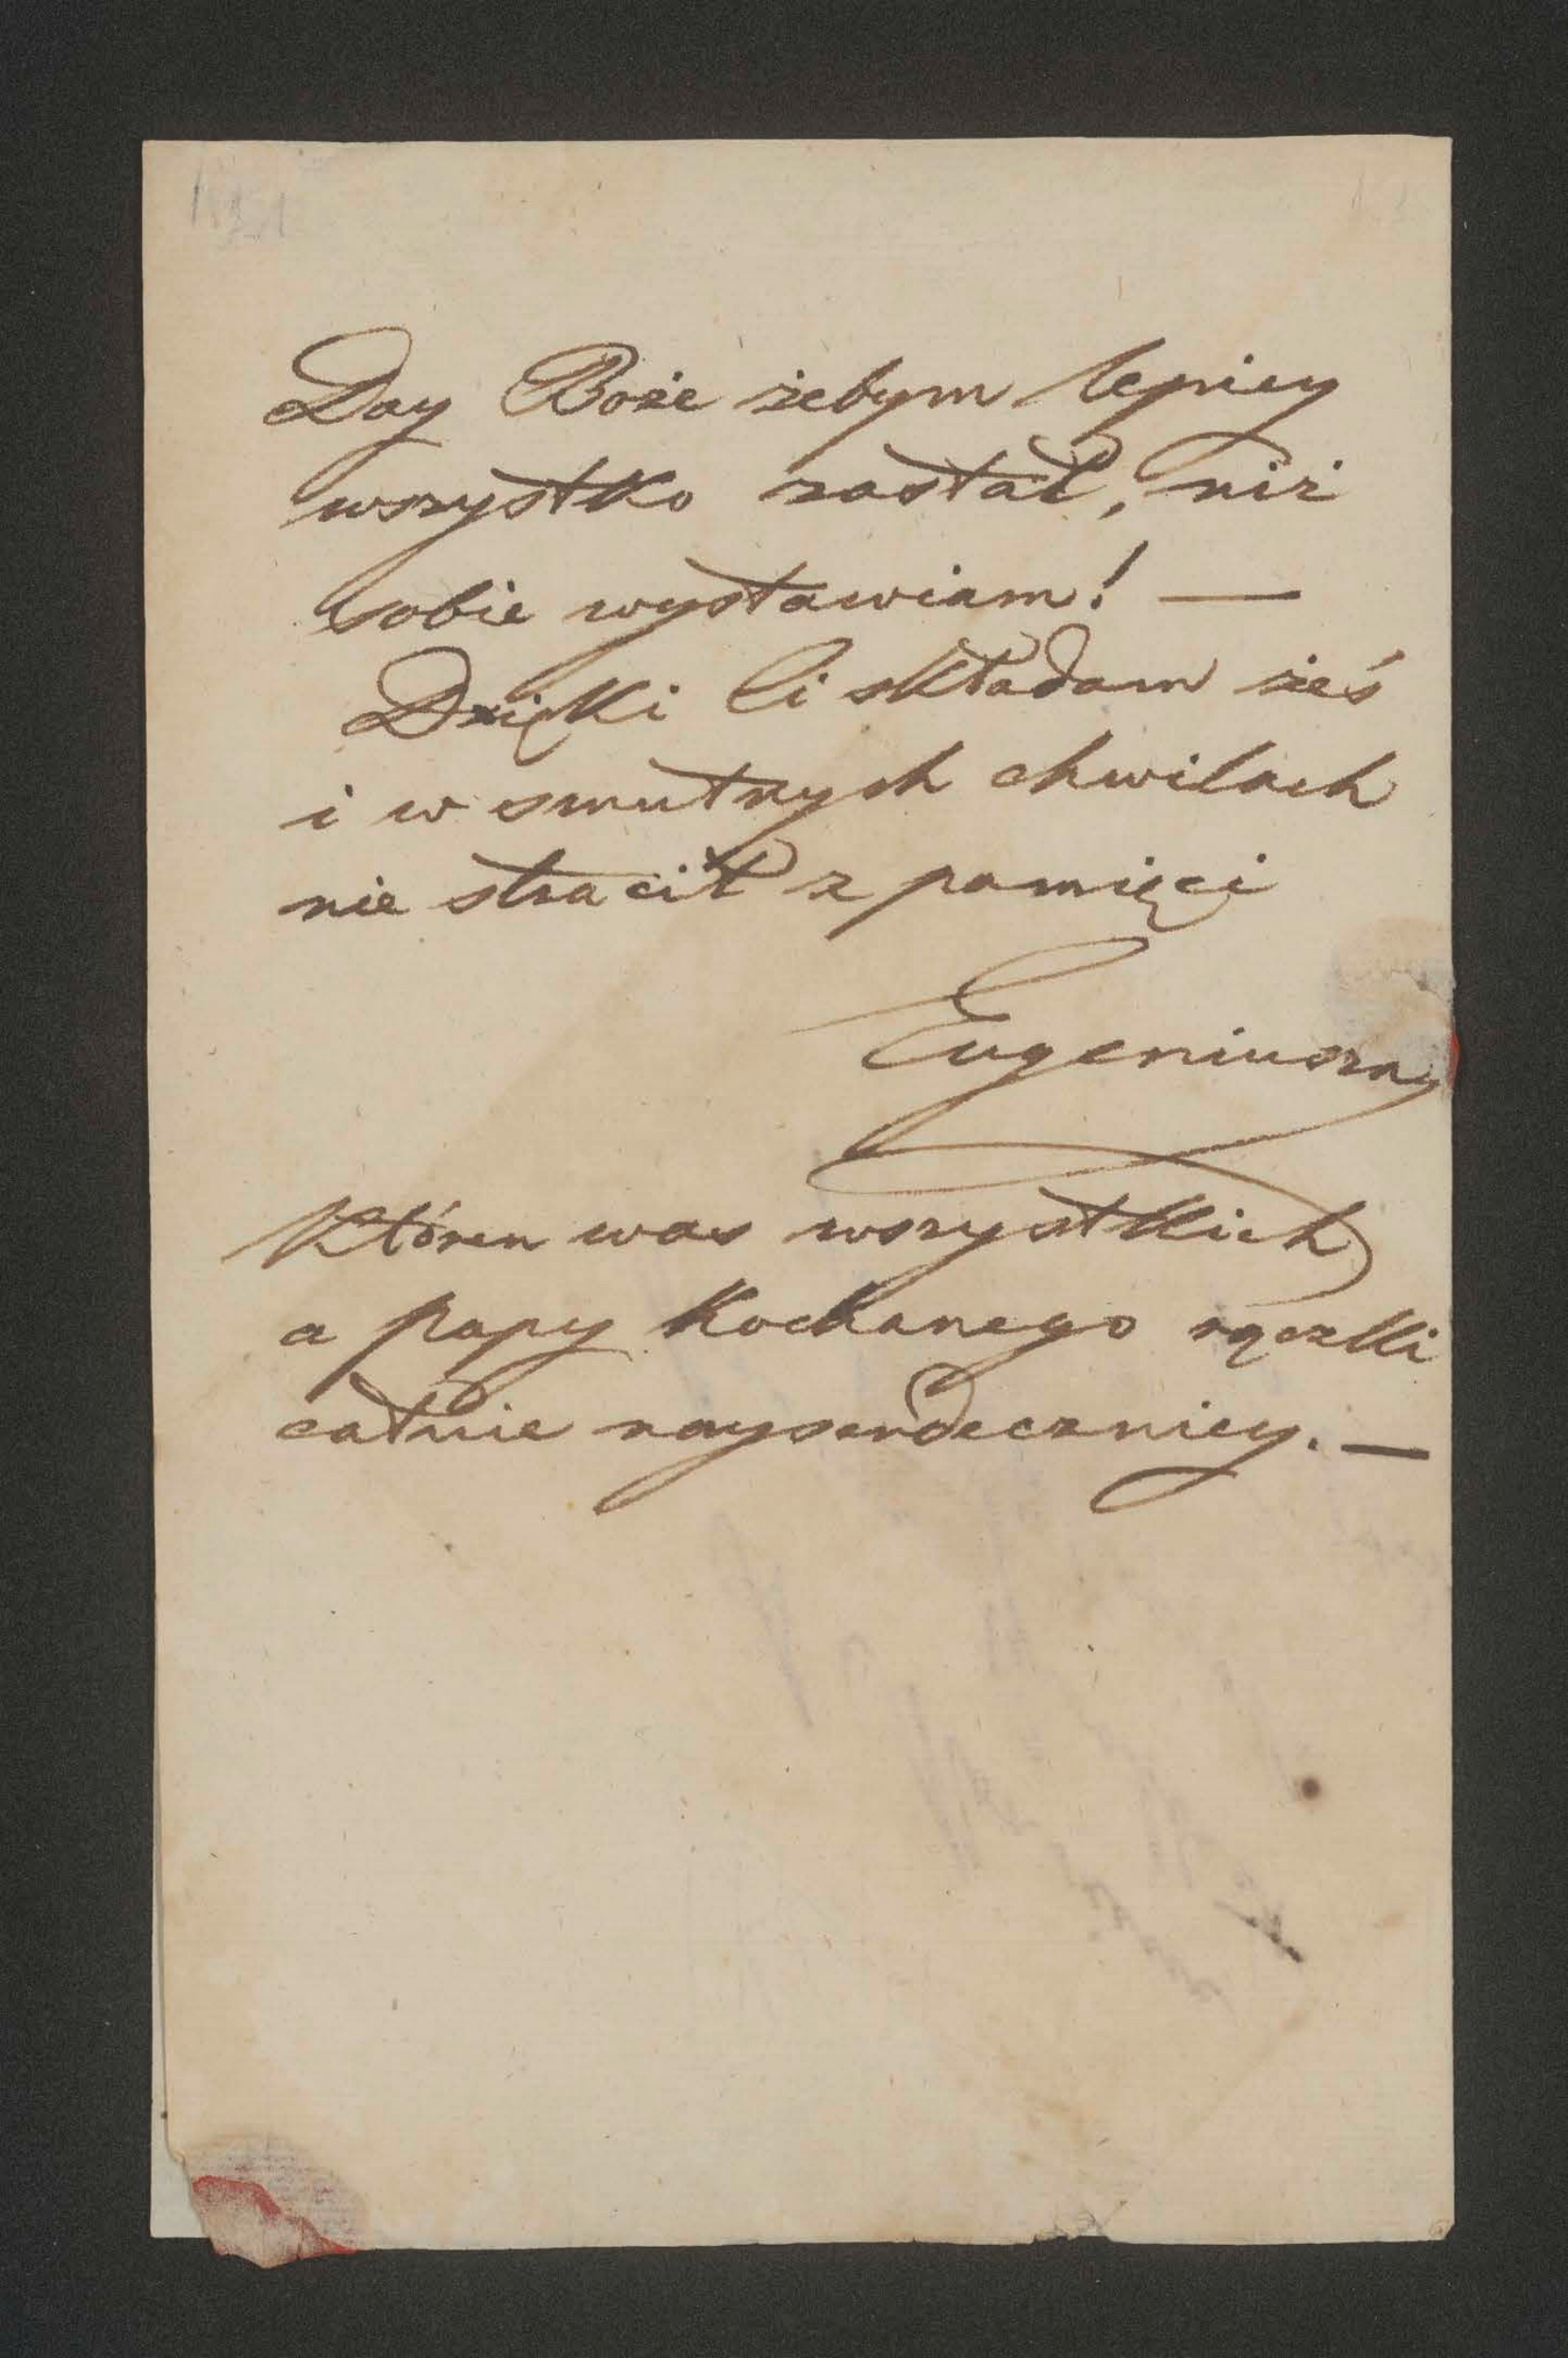 Day Boże żebym lepiey
wszystko zastał, niż
sobie wystawiam! —
Dzięki Ci składam żeś
i w smutnych chwilach
nie stracił z pamięci
Eugeniusza
Któren was wszystkich
a papy Kochanego rączki
całuie nayserdeczniey. —